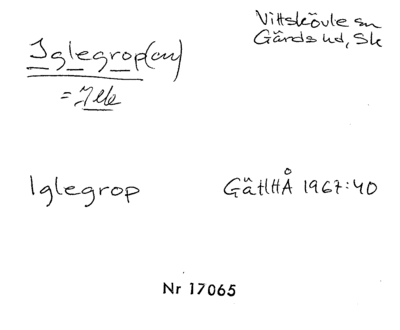 Vittskövle sn
Gärds hd, Sk
Iglegrop(en)
Iglegrop
GätlHÅ 1967:40
Nr 17065